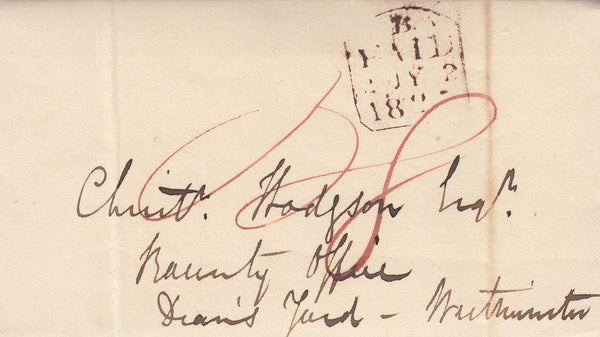 B
PAID
JY 2
18
Christr. Hodgson Esqr.
Bounty Office
Dean's Yard - Westminster